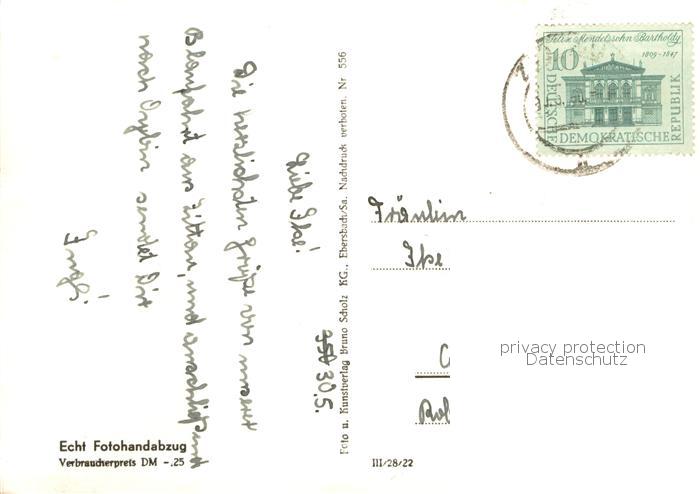 Felix Mendelssohn Bartholdy
1809-1847
10
DEUTSCHE
DEMOKRATISCHE
REPUBLIK
30.5.
Liebe Ilse!
Die herzlichsten Grüße von unserer
aus Zittau und anschließend
nach Oybin sendet Dir
Foto u. Kunstverlag Bruno Scholz KG., Ebersbach/Sa. Nachdruck verboten. Nr 556
Fräulein
Ilse
privacy protection
Datenschutz
Echt Fotohandabzug
Verbraucherpreis DM -.25
III/28/22